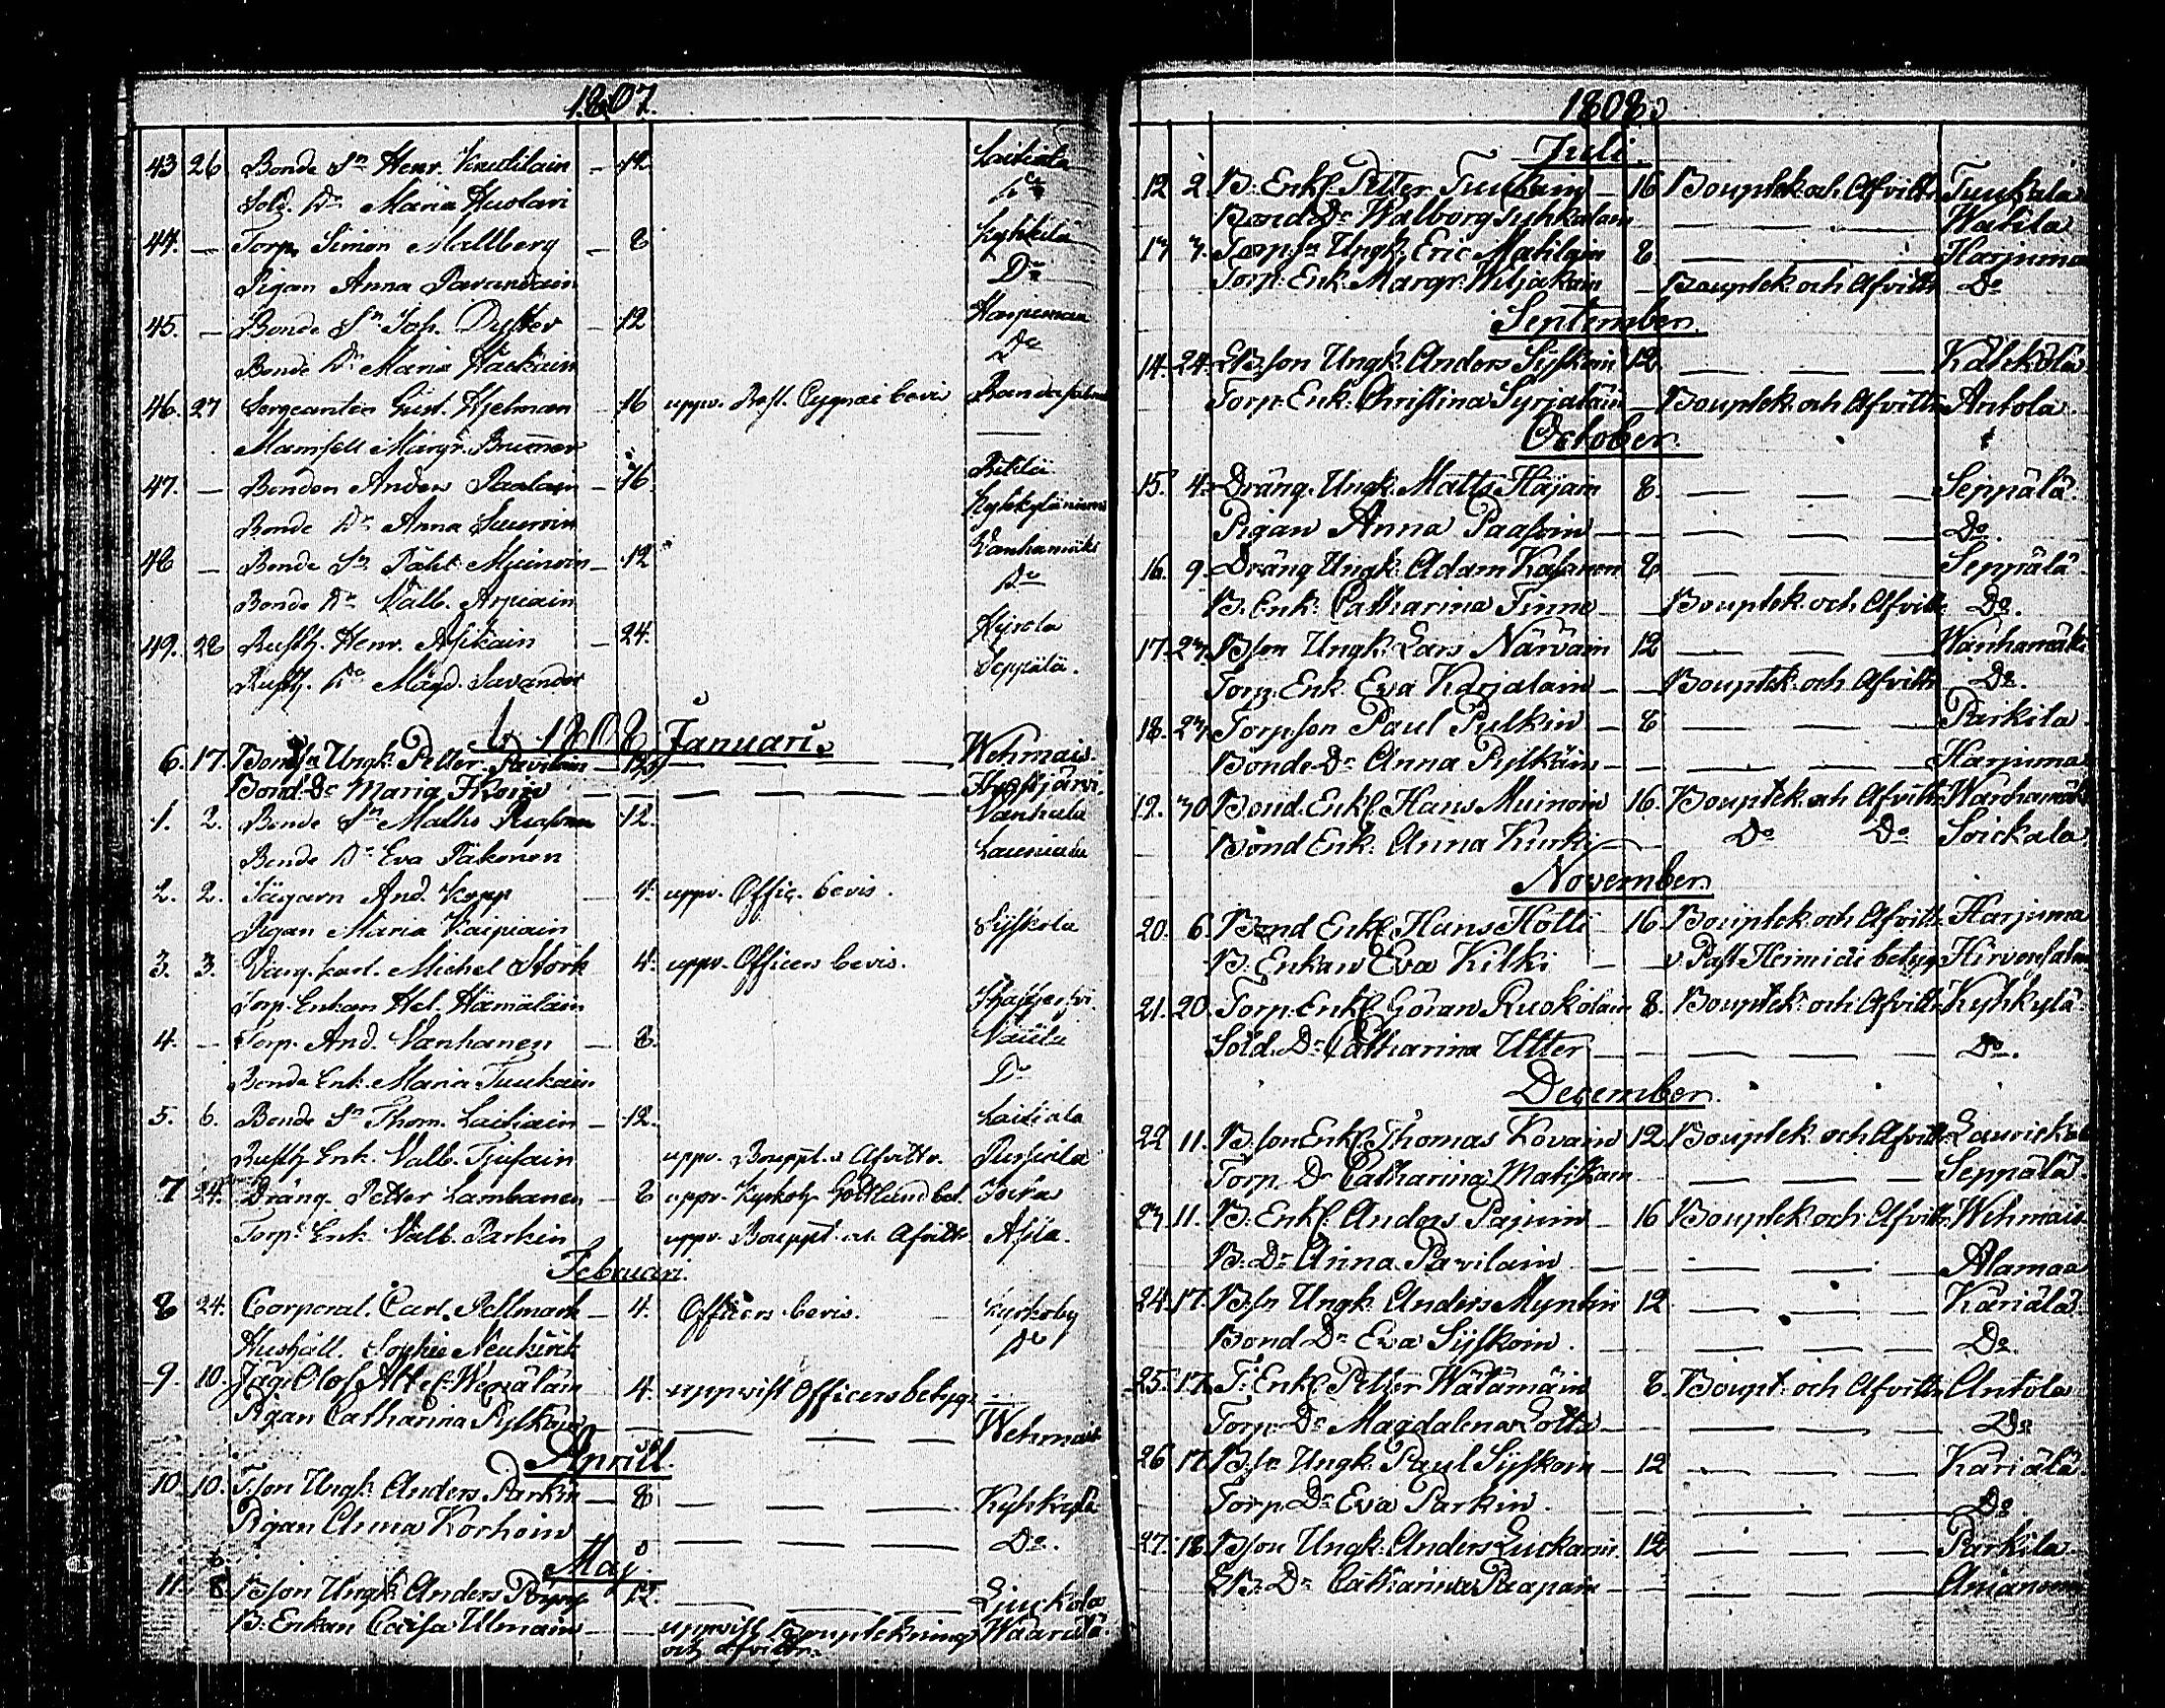 1807.
43 26 Bonde Sn Henr. Kuutilain — 12 Laitiala
Sold. Dr Maria Huolari Do
44. — Torp. Simon Mallberg — 8 Kyhkilä
Pigan Anna Pavandain Do
45. — Bonde Sn Joh. Dyster — 12 Harjumaa
Bonde Dr Maria Häckäin Do
46. 27 Sergeanten Gust. Hjelman — 16 uppv. Past. Cygnæi bevis Randasalmi
Mamsell Margr. Brunner —
47. — Bonden Anders Paalain — 16.
Bonde Dr Anna Kyhkyläniemi
48 — Bonde Sn Påhl Muinoin — 12 Vanhamäki
Bonde Dr Valb. Arpiain Do
49. 28 Rusth. Henr. Asikain — 24. Hyrola
Rusth. Dr Magd. Savander Seppälä.
1808 Januari
6. 17. Bondesn Ungk. Petter Pavilain — 12 — — — — Wehmais.
Bond. Dr Maria Ikoin — — — — —
1. 2. Bonde Sn Maths 12. Vanhala
Bonde Dr Eva Päkonen Launiala
2. 2. Jägarn And. Kopp — 4. uppv. Offic. bevis.
Pigan Maria Kaipiain Syskola
3. 3. Varg. karl. Michel Stork 4. uppv. Officers bevis.
Torp. Enkan Hel. Hämäläin
4. — Torp. And. Vanhanen — 8.
Bonde Enk. Maria Tuukain Do
5. 6. Bonde Sn Thom. Laitiain — 12. Laitiala
Rusth. Enk. Valb. uppv. Bouppt. o Afvittr.
7 24. Dräng. Petter Lambanen — 8 uppv. Kyrkoh. Gottlund bet. Jocka
Torp. Enk. Valb. Parkin uppv. Bouppt. och Afvittr. Asila.
Februari.
8 24. Corporal. Carl. Pellmark — 4. Officers bevis. Kyrkoby
Hushåll. Sophia Neukirch Do
9. 10. Jäg. Olof Wepsäläin 4. uppvist Officersbetyg.
Pigan Catharina Pylkäin — — — — Wehmais
Aprill.
10. 10. T.son Ungk. Anders Parkin — 8 — — — Kyhkylä
Pigan Anna Korhoin — — — Do.
Maj
11. 8. B.son Ungk. Anders Pöyry 12. — — — Liuckola
B. Enkan Caisa Ulmain — uppvist Bouptekning Waarola.
och afvittr.
1808.
Juli.
12 2. B: Enkl. Petter Tuukain — 16 Bouptek. och Afvittr. Tuukala
Bond. Dr Walborg Tuhkalain — — — — Watila
13 3. Torp.sn Ungk. Eric Matilain 8. — — — Harjumaa
Torp. Enk. Margr. Wiljakain — Bouptek. och Afvittr. Do
September.
14. 24. B.son Ungk. Anders Syskoin 12 — — — Kalckola
Torp. Enk. Christina Syrjäläin — Bouptek. och Afvittr. Antola.
October.
15. 4. Dräng. Ungk. Matts Häjain 8. — — — Seppälä.
Pigan Anna Paasoin — — — — Do.
16. 9. Dräng Ungk. Adam Kasanen 8 — — — Seppälä.
B. Enk. Catharina Tinne — Bouptek. och Afvittr. Do.
17. 23. B.son Ungk. Lars Närväin 12 — — — Wanhamäki
Torp. Enk. Eva Karjalain — — Bouptek. och Afvittr. Do.
18. 23. Torp.son Paul Pulkin — 8 — — — Parkila.
Bonde Dr Anna Pylkäin — — — — Harjumaa
19. 30 Bond. Enkl. Hans Muinoin 16. Bouptek. och Afvittr. Wanhamäki
Bond Enk. Anna Kurki — Do Do Soickala
November.
20. 6. Bond Enkl. Hans Hotti — 16 Bouptek. och Afvittr. Harjuma
B. Enkan Eva Kilki — v. Past. Heimicki betyg Hirvensalmi
21. 20. Torp. Enkl. Göran Ruokolain 8. Bouptek. och Afvittr. Kyhkylä
Sold. Dr Catharina Utter — — — — Do.
December.
22 11. B.son Enkl. Thomas Kovain 12 Bouptek. och Afvittr.
Torp. Dr Catharina Matiskain — — — Seppälä.
23 11. B. Enkl. Anders Pajuin — 16 Bouptek. och Afvittr. Wehmais.
B. Dr Anna Pavilain — — — — Alamaa
24. 17. B.sn Ungk. Anders Myntin 12 — — — Käriälä
Bond Dr Eva Syskoin. — — — Do.
25. 17. T. Enkl. Petter Wätämäin 8. Boupt. och Afvittr. Antola
Torp. Dr Magdalena Lotta — — — — Do
26 17. B.sn Ungk. Paul Syskoin — 12 — — — Käriälä.
Torp. Dr Eva Parkin. — — — Do
27. 18. B.son Ungk. Anders Luckarin. 12 — — — Parkila.
Dr Catharina Paapain — — — —